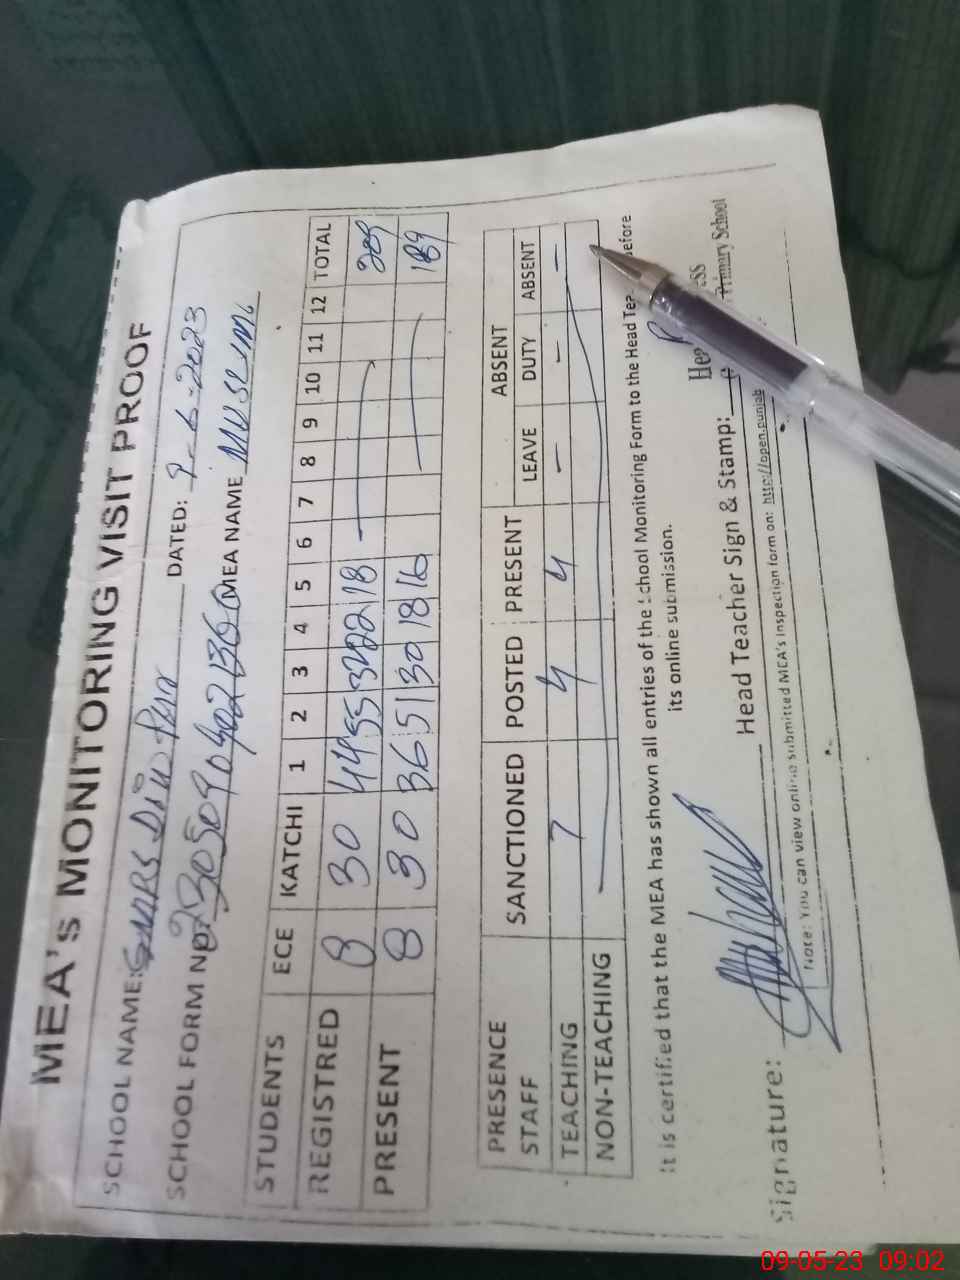 MEA's MONITORING VISIT PROOF
SCHOOL NAME: DATED: 9-5-2023
SCHOOL FORM NO MEA NAME MUSLIM
STUDENTS ECE KATCHI 1 2 3 4 5 6 7 8 9 10 11 12 TOTAL
REGISTRED 8 30 44 55 32 22 18 — 209
PRESENT 8 30 36 51 30 18 16 — 189
PRESENCE STAFF SANCTIONED POSTED PRESENT ABSENT
LEAVE DUTY ABSENT
TEACHING 7 4 4 — — —
NON-TEACHING
It is certified that the MEA has shown all entries of the School Monitoring Form to the Head Tea efore
its online submission.
Signature: Head Teacher Sign & Stamp:
Hea ess
Primary School
Note: You can view online submitted MEA's inspection form on: http://open.punjab
09-05-23 09:02